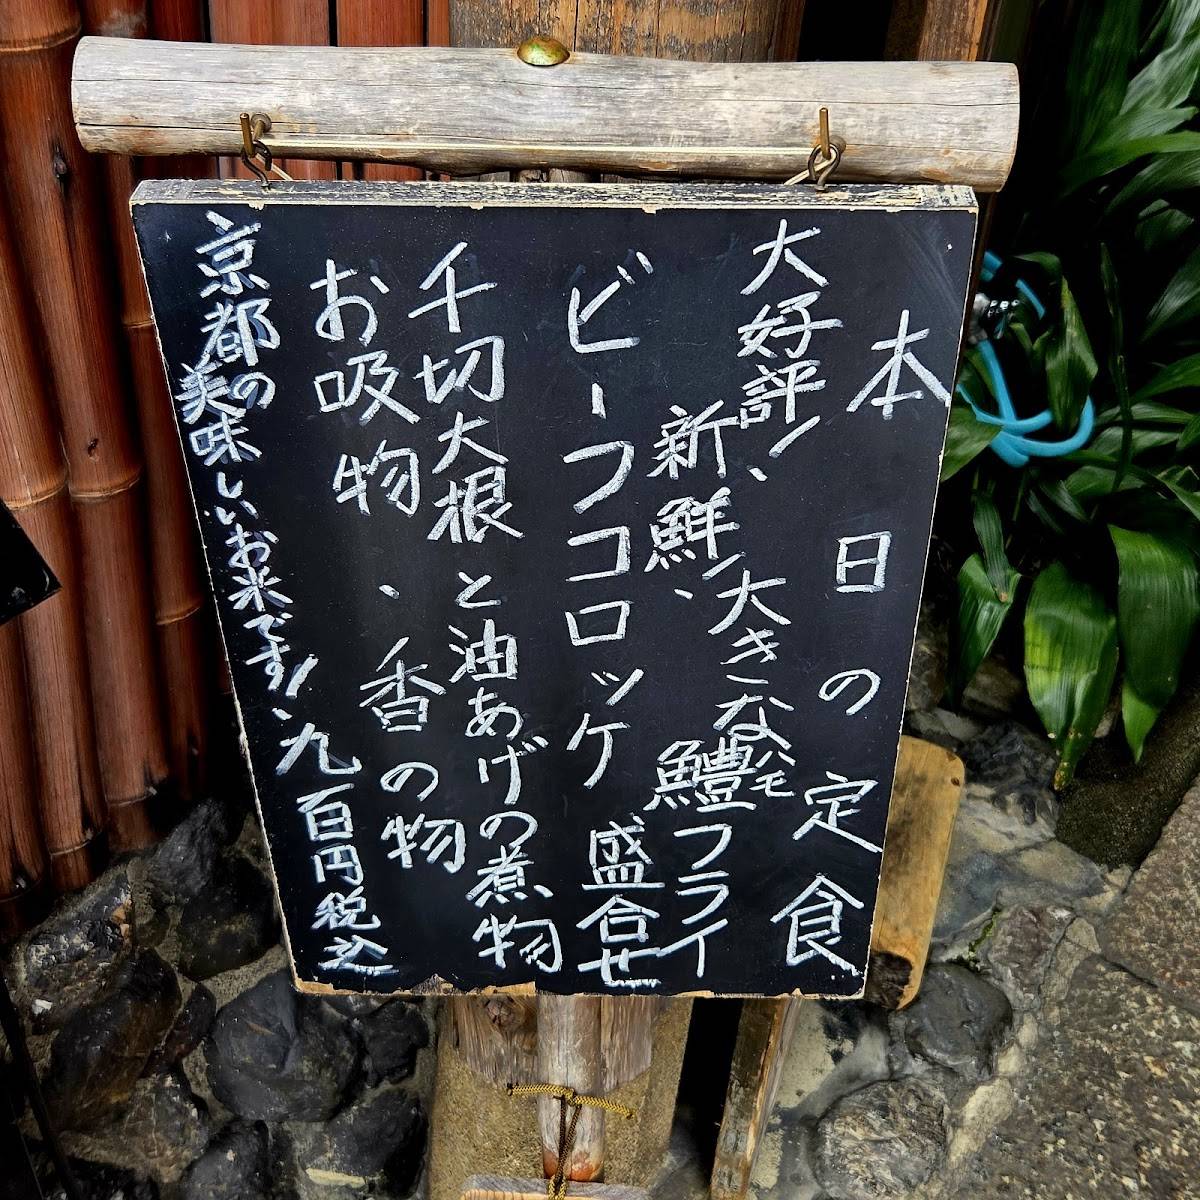 本日の定食
大好評!、大きな鱧ハモフライ
新鮮、
ビーフコロッケ盛合せ
千切大根と油あげの煮物
お吸物、香の物
京都の美味しいお米です!!、九百円税込